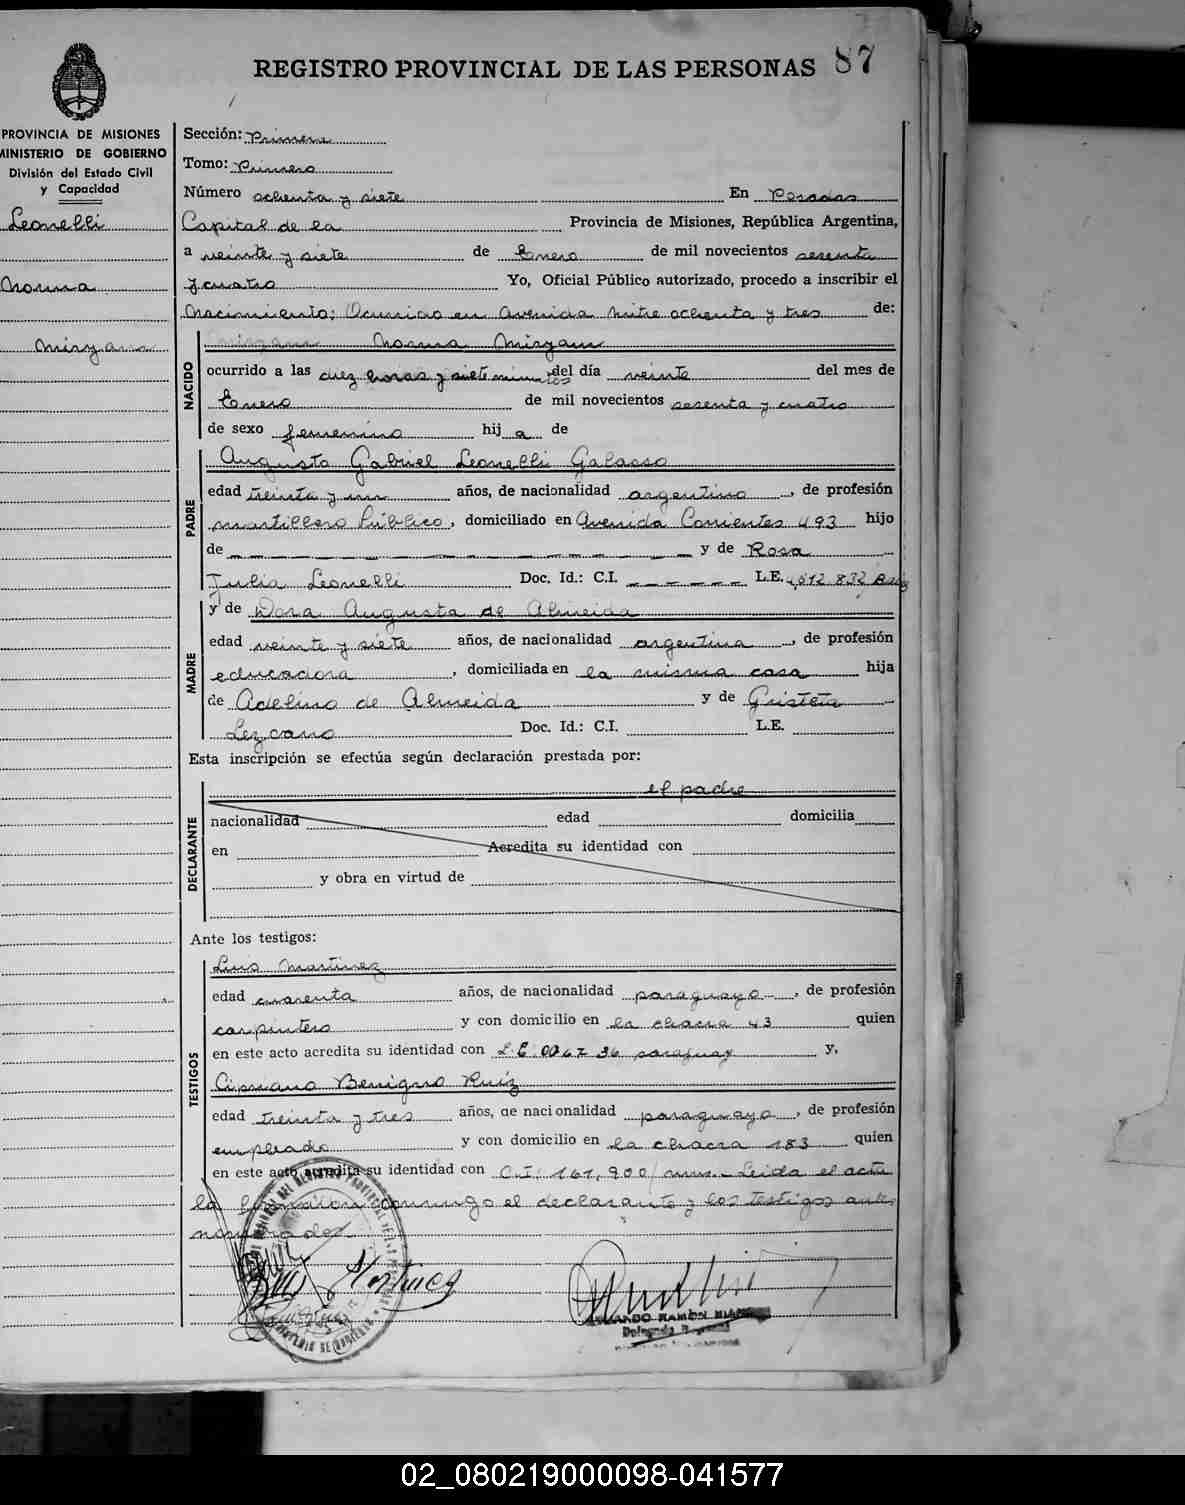 87
REGISTRO PROVINCIAL DE LAS PERSONAS
PROVINCIA DE MISIONES
MINISTERIO DE GOBIERNO
División del Estado Civil
y Capacidad
Leonelli
Norma
Miryam
Sección: Primera
Tomo: Primero
Número ochenta y siete En Posadas
Capital de la Provincia de Misiones, República Argentina,
a veinte y siete de Enero de mil novecientos sesenta
y cuatro Yo, Oficial Público autorizado, procedo a inscribir el
Nacimiento: Ocurrido en Avenida Mitre ochenta y tres de:
NACIDO
Norma Miryam
ocurrido a las diez horas y siete minutos del día veinte del mes de
Enero de mil novecientos sesenta y cuatro
de sexo femenino hij a de
PADRE
Augusto Gabriel Leonelli Galasso
edad treinta y un años, de nacionalidad argentino, de profesión
martillero Público, domiciliado en Avenida Corrientes 493 hijo
de y de Rosa
Julia Leonelli Doc. Id.: C.I. L.E.
MADRE
y de Dora Augusta de Almeida
edad veinte y siete años, de nacionalidad argentina, de profesión
educadora, domiciliada en la misma casa hija
de Adelino de Almeida y de
Lezcano Doc. Id.: C.I. L.E.
Esta inscripción se efectúa según declaración prestada por:
DECLARANTE
el padre
nacionalidad edad domicilia
en Acredita su identidad con
y obra en virtud de
Ante los testigos:
TESTIGOS
Luis Martinez
edad cuarenta años, de nacionalidad paraguayo, de profesión
carpintero y con domicilio en la chacra 43 quien
en este acto acredita su identidad con paraguay y,
Cipriano Benigno Ruíz
edad treinta y tres años, de nacionalidad paraguayo, de profesión
empleado y con domicilio en la chacra 183 quien
en este acto acredita su identidad con C.I: 161,900 Leida el acta
la conmigo el declarante y los testigos
Martinez
RAMON
02_080219000098-041577